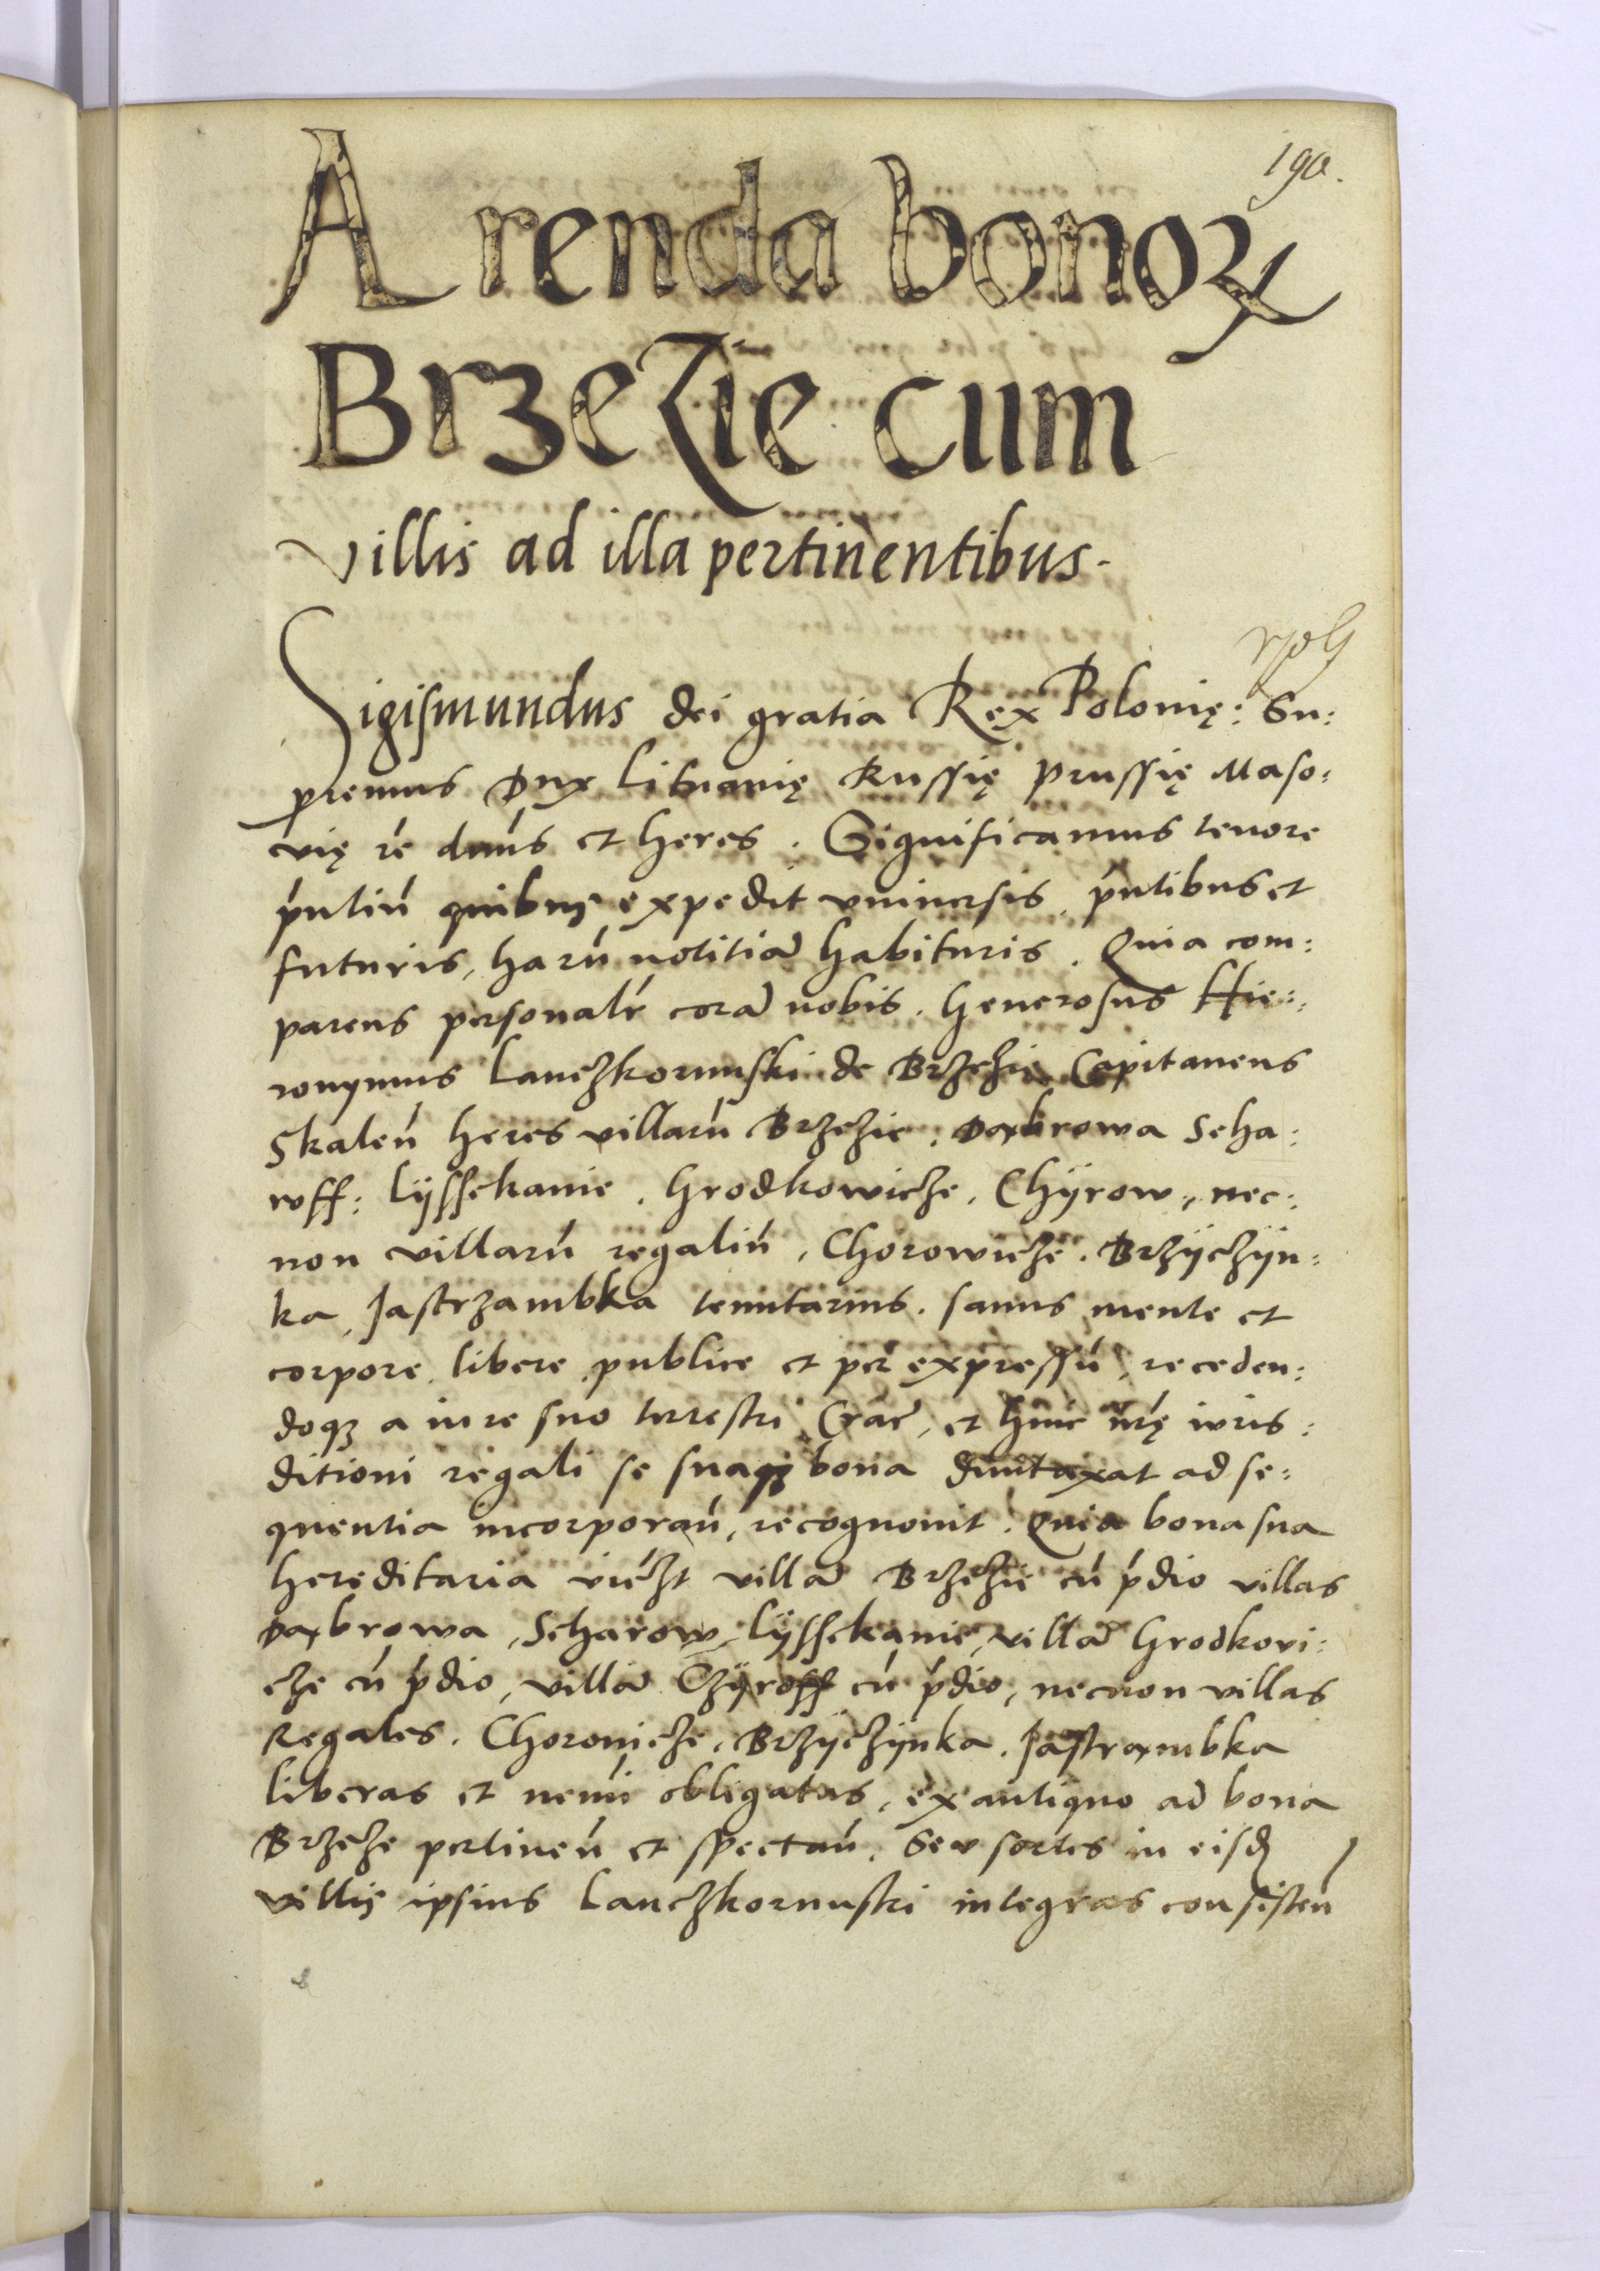 190.
Arenda bonoꝝ
Brzezie cum
villis ad illa pertinentibus.
Sigismundus dei gratia Rex Polonię: Su:
premus Dux Lituanię Russię Prussię Maso:
vię ꝛc̄ dn̄us et heres. Significamus tenore
pn̄tiū quibus expedit vniuersis, pn̄tibus et
futuris, harū notitiā habituris. Quia com:
parens personalr̄ corā nobis. Generosus Hie:
ronymus Lanczkorunski de Brzezie Capitaneus
Skalen̄ heres villarū Brzezie, Dąbrowa Scha:
wff: Lÿssekanie, Grodkowicze, Chÿrow, nec:
non villarū regaliū, Chorowicze, Brzÿczÿn:
ka, Jastrzambka tenutarius. sanus mente et
corpore, libere, publice et per expressū, receden:
doqꝫ a iure suo terrestri Crac̄, et huic nr̄ę iuris:
ditioni regali se suaqꝫ bona duntaxat ad se:
quentia incorporan̄, recognouit. Quia bona sua
hereditaria viczt villā Brzezie cū p̄dio villas
Dąbrowa, Scharow, Lÿssekanie, villā Grodkovi:
cze cū p̄dio, villā Chÿroff cū p̄dio, necnon villas
Regales. Chorowicze, Brzÿczÿnka, Jastrąmbka
liberas et nemī obligatas, ex antiquo ad bona
Brzezie pertinen̄ et spectan̄. Seu sortes in eisd
villis ipsius Lanczkorunski integras consisten̄